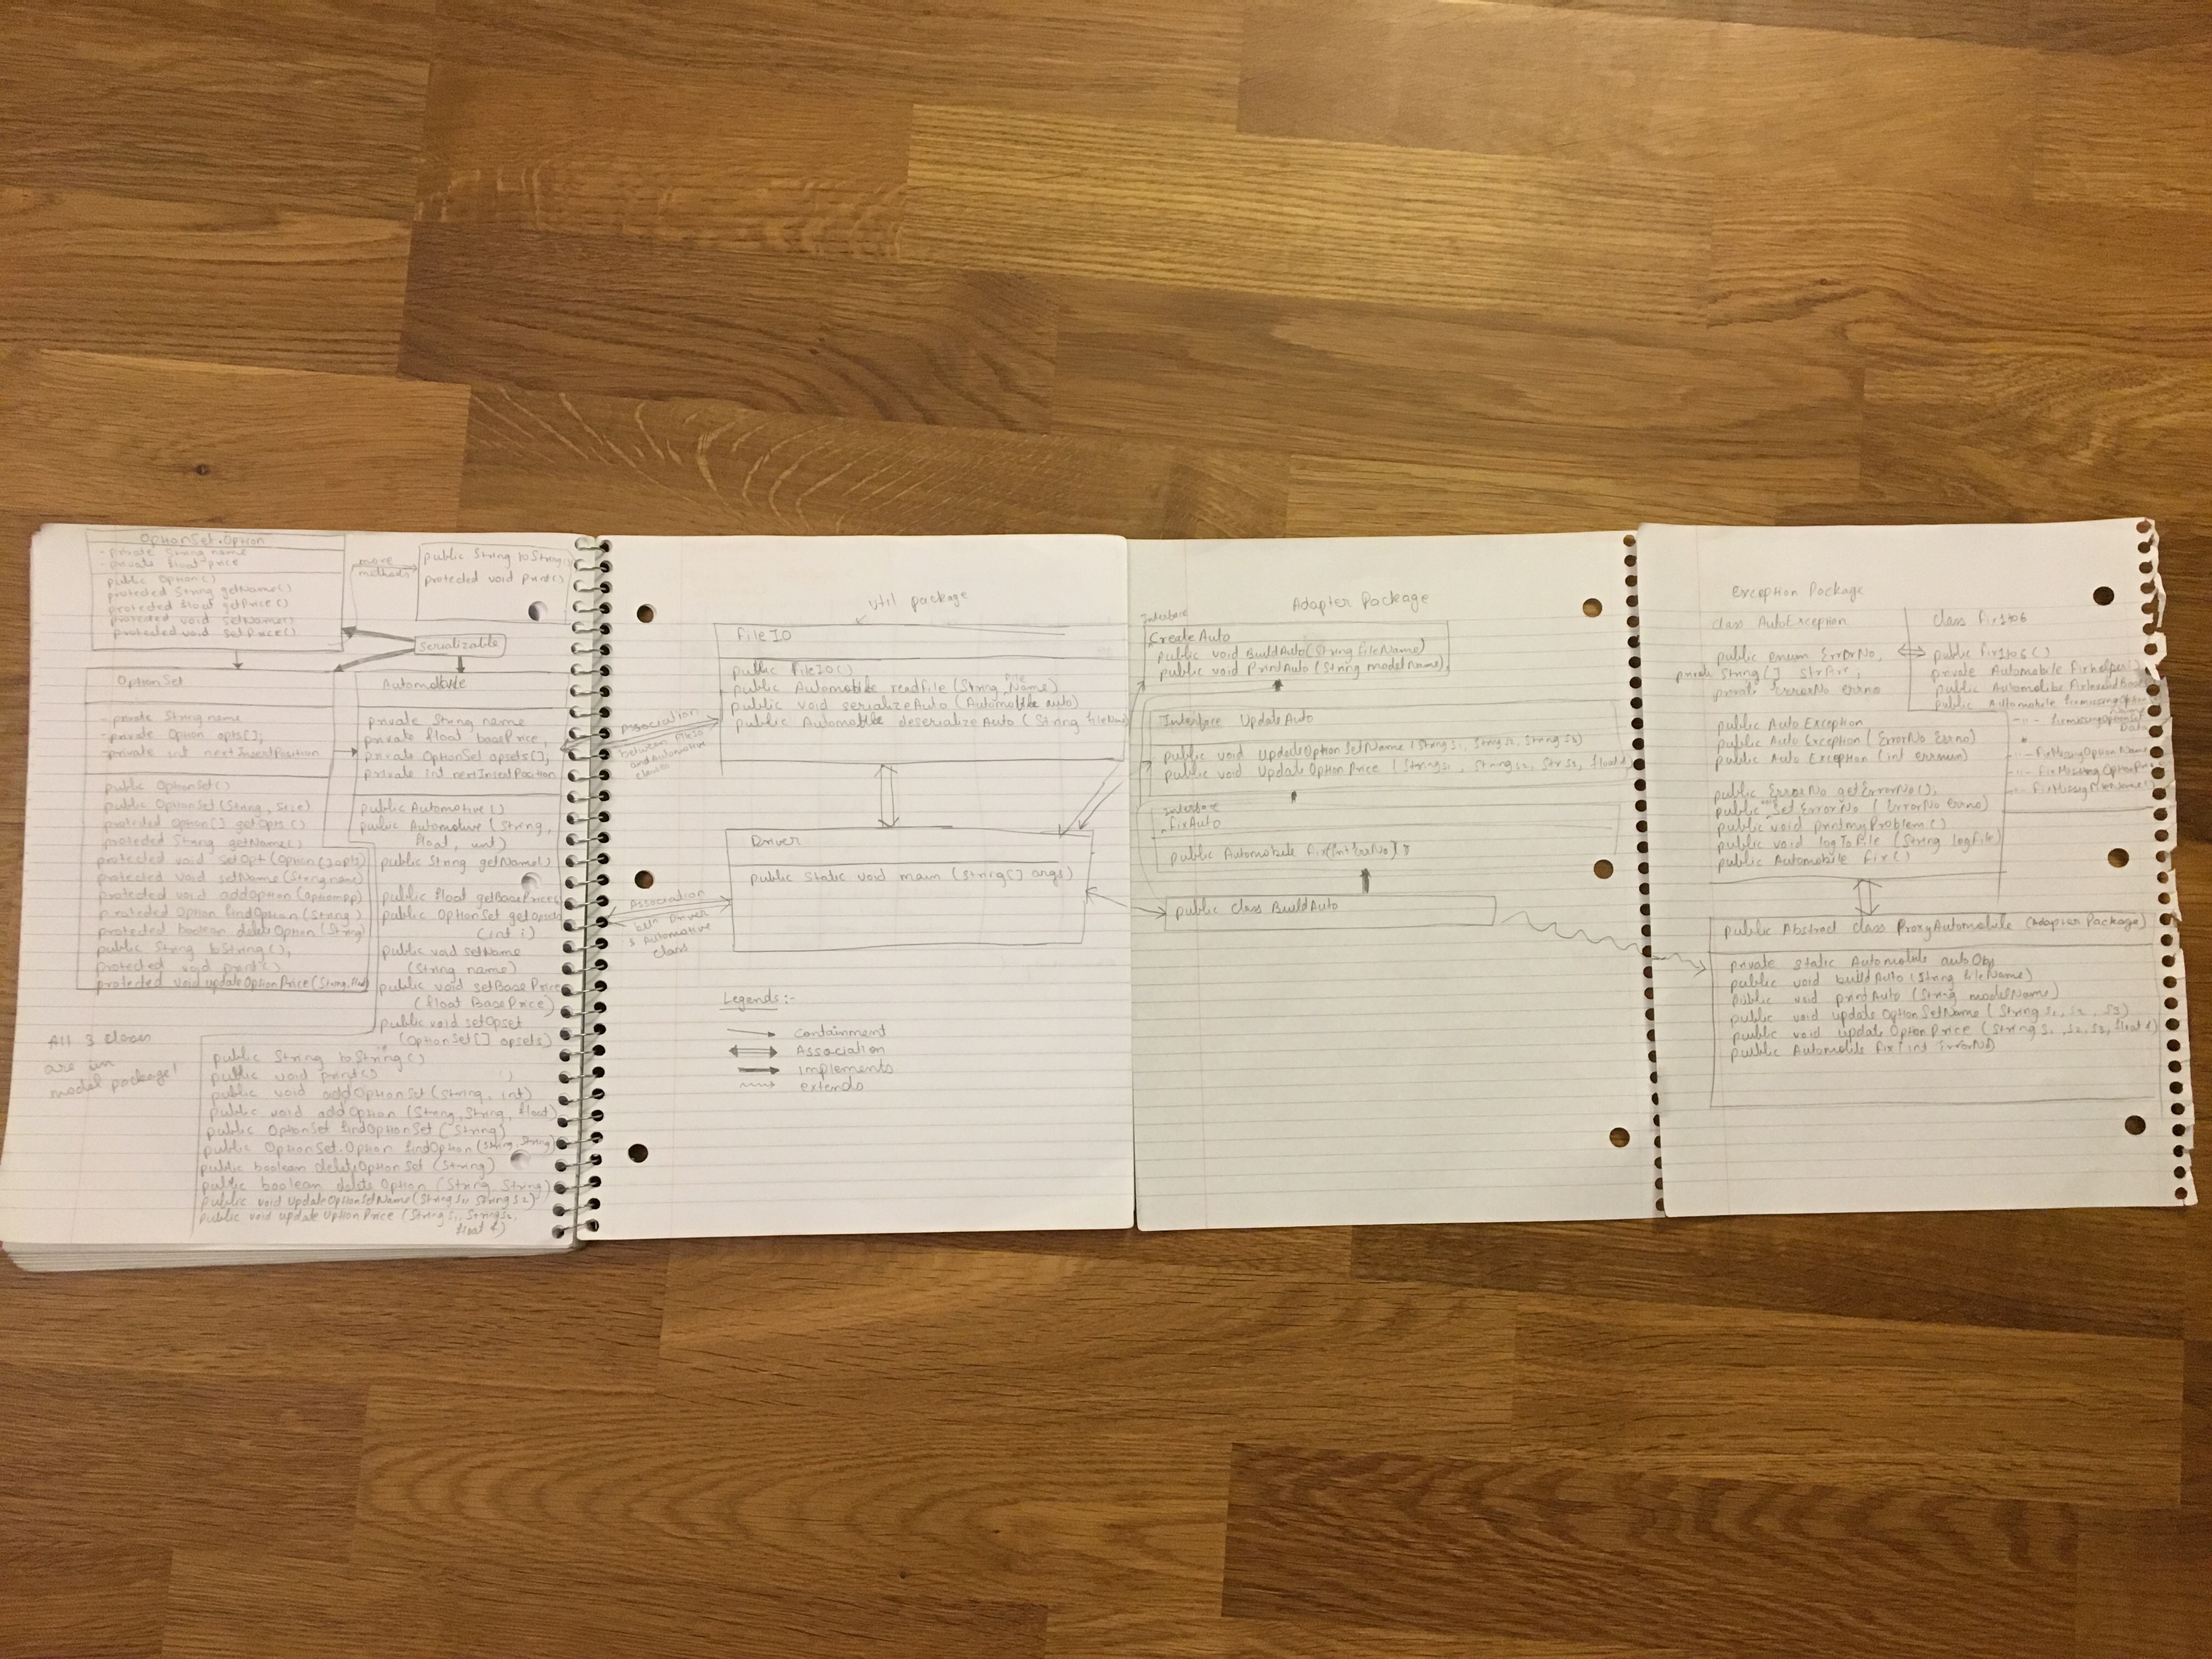 OptionSet.Option
- private String name
- private float price
public Option()
protected String getName()
protected float getPrice()
protected void setName()
protected void setPrice()
more methods
public String toString()
protected void print()
Serializable
OptionSet
- private String name
- private Option opts[];
- private int nextInsertPosition
public OptionSet()
public OptionSet(String, size)
protected Option[] getOpts()
protected String getName()
protected void setOpt(Option[] opts)
protected void setName(String name)
protected void addOption(Option op)
protected Option findOption(String)
protected boolean deleteOption(String)
public String toString();
protected void print()
protected void updateOptionPrice(String, float)
Automotive
private String name
private float basePrice,
private OptionSet opsets[],
private int nextInsertPosition
public Automotive()
public Automotive(String,
float, int)
public String getName()
public float getBasePrice()
public OptionSet getOpset
(int i)
public void setName
(String name)
public void setBasePrice
(float BasePrice)
public void setOpset
(OptionSet[] opsets)
All 3 classes
are in
model package!
public String toString()
public void print()
public void addOptionSet(String, int)
public void addOption (String, String, float)
public OptionSet findOptionSet(String)
public OptionSet.Option findOption(String, String)
public boolean deleteOptionSet (String)
public boolean delete Option (String String)
public void UpdateOptionSetName(String s1, String s2)
public void update Option Price (String s1, String s2,
float f)
util package
FileIO
public FileIO()
public Automobile readFile (String File Name)
public void serializeAuto (Automobile auto)
public Automobile deserializeAuto (String fileName)
Association
between FileIO
and Automotive
classes
Driver
public static void main (String[] args)
Association
btn Driver
& Automotive
class
Legends:-
Containment
Association
implements
extends
Adapter Package
Interface
CreateAuto
public void BuildAuto(String fileName)
public void PrintAuto (String modelName);
Interface UpdateAuto
public void UpdateOptionSetName (String s1, String s2, String s3)
public void UpdateOptionPrice (String s1, String s2, Str s3, float f)
Interface
FixAuto
public Automobile Fix(int ErrNo);
public class BuildAuto
Exception Package
class AutoException
public enum ErrorNo,
private String[] StrErr,
private ErrorNo Errno
public Auto Exception
public Auto Exception (ErrorNo Errno)
public Auto Exception (int errnum)
public ErrorNo getErrorNo(),
public void Set ErrorNo (ErrorNo errno)
public void printmyProblem()
public void logToFile (String logFile)
public Automobile Fix()
class Fix1to6
public Fix1to6()
private Automobile Fixhelper()
public Automobile
public Automobile
-"- FixMissingOptionName
-"- FixMissingOptionPrice
-"- FixMissingFileName()
public Abstract class ProxyAutomobile (Adapter Package)
private static Automobile autObj
public void buildAuto (String fileName)
public void printAuto (String modelName)
public void update OptionSetName (String s1, s2, s3)
public void update Option Price (String s1, s2, s3, float f)
public Automobile Fix(int ErrorNo)